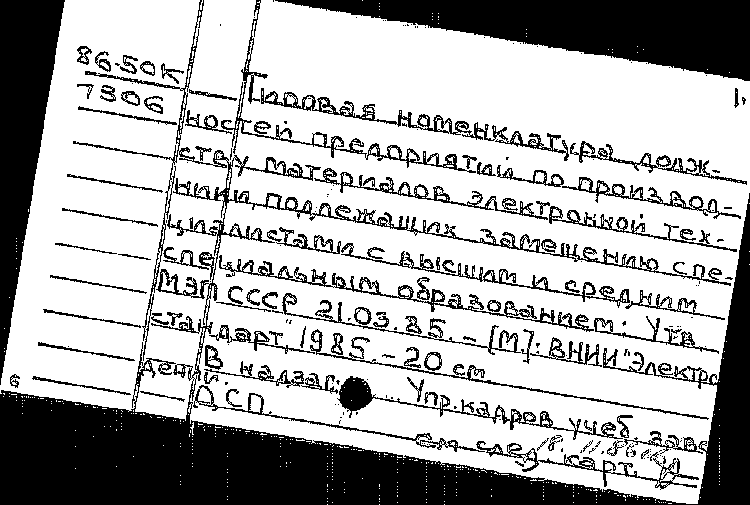 86-50К
7306
1.
Типовая номенклатура долж-
ностей предприятий по производ-
ству материалов электронной тех-
ники, подлежащих замещению спе-
циалистами с высшим и средним
специальным образованием: Утв.
МЭП СССР 21.03.85. - [М.]: ВНИИ "Электро
стандарт", 1985. - 20 см.
В надзаг.: ... Упр. кадров учеб. заве
дений.
ДСП.
см. след. карт.
18.11.86
6